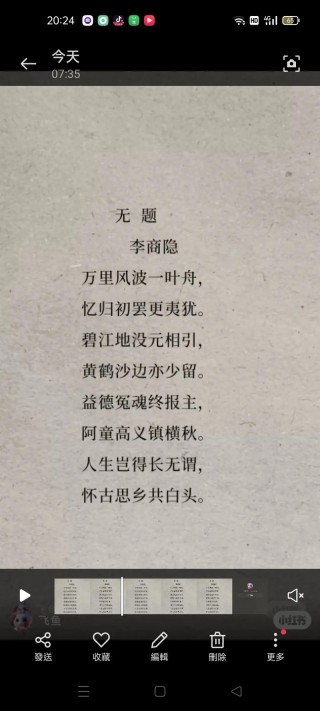 20:24
HD
65
今天
07:35
无 题
李商隐
万里风波一叶舟，
忆归初罢更夷犹。
碧江地没元相引，
黄鹤沙边亦少留。
益德冤魂终报主，
阿童高义镇横秋。
人生岂得长无谓，
怀古思乡共白头。
飞鱼
小红书
發送
收藏
編輯
刪除
更多